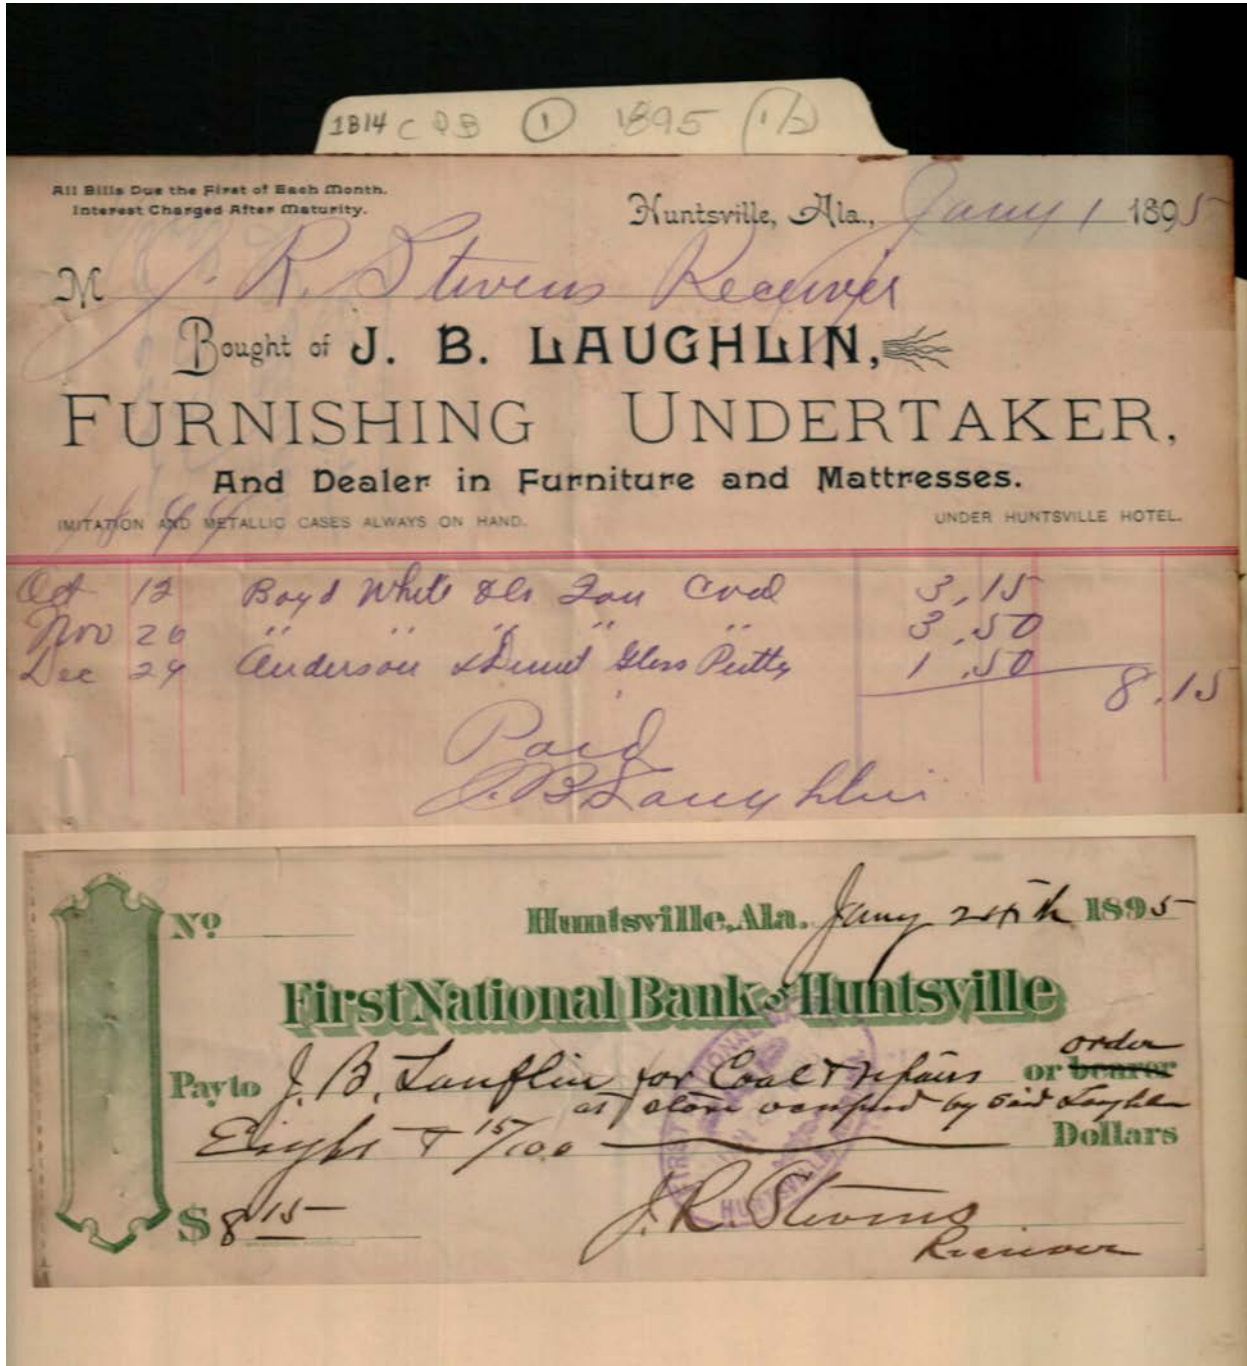 1B14 CDB 1 1895 (1/2)
All Bills Due the First of Each Month.
Interest Charged After Maturity.
Huntsville, Ala., Jany 1 1895
M J. R. Stevens Receiver
Bought of J. B. LAUGHLIN,
FURNISHING UNDERTAKER,
And Dealer in Furniture and Mattresses.
IMITATION AND METALLIC CASES ALWAYS ON HAND.
UNDER HUNTSVILLE HOTEL.
Oct 12 Boyd White Coal 3.15
Nov 26 " " " " " 3.50
Dec 24 Anderson Glass Putty 1.50
8.15
Paid
J. B. Laughlin
No
Huntsville, Ala. Jany 24th 1895
First National Bank of Huntsville
Pay to J. B. Lauflin for Coal & repairs or bearer order
at store occupied by said Laughlin
Eight & 15/100 Dollars
$ 8 15
J. R. Stevens
Receiver